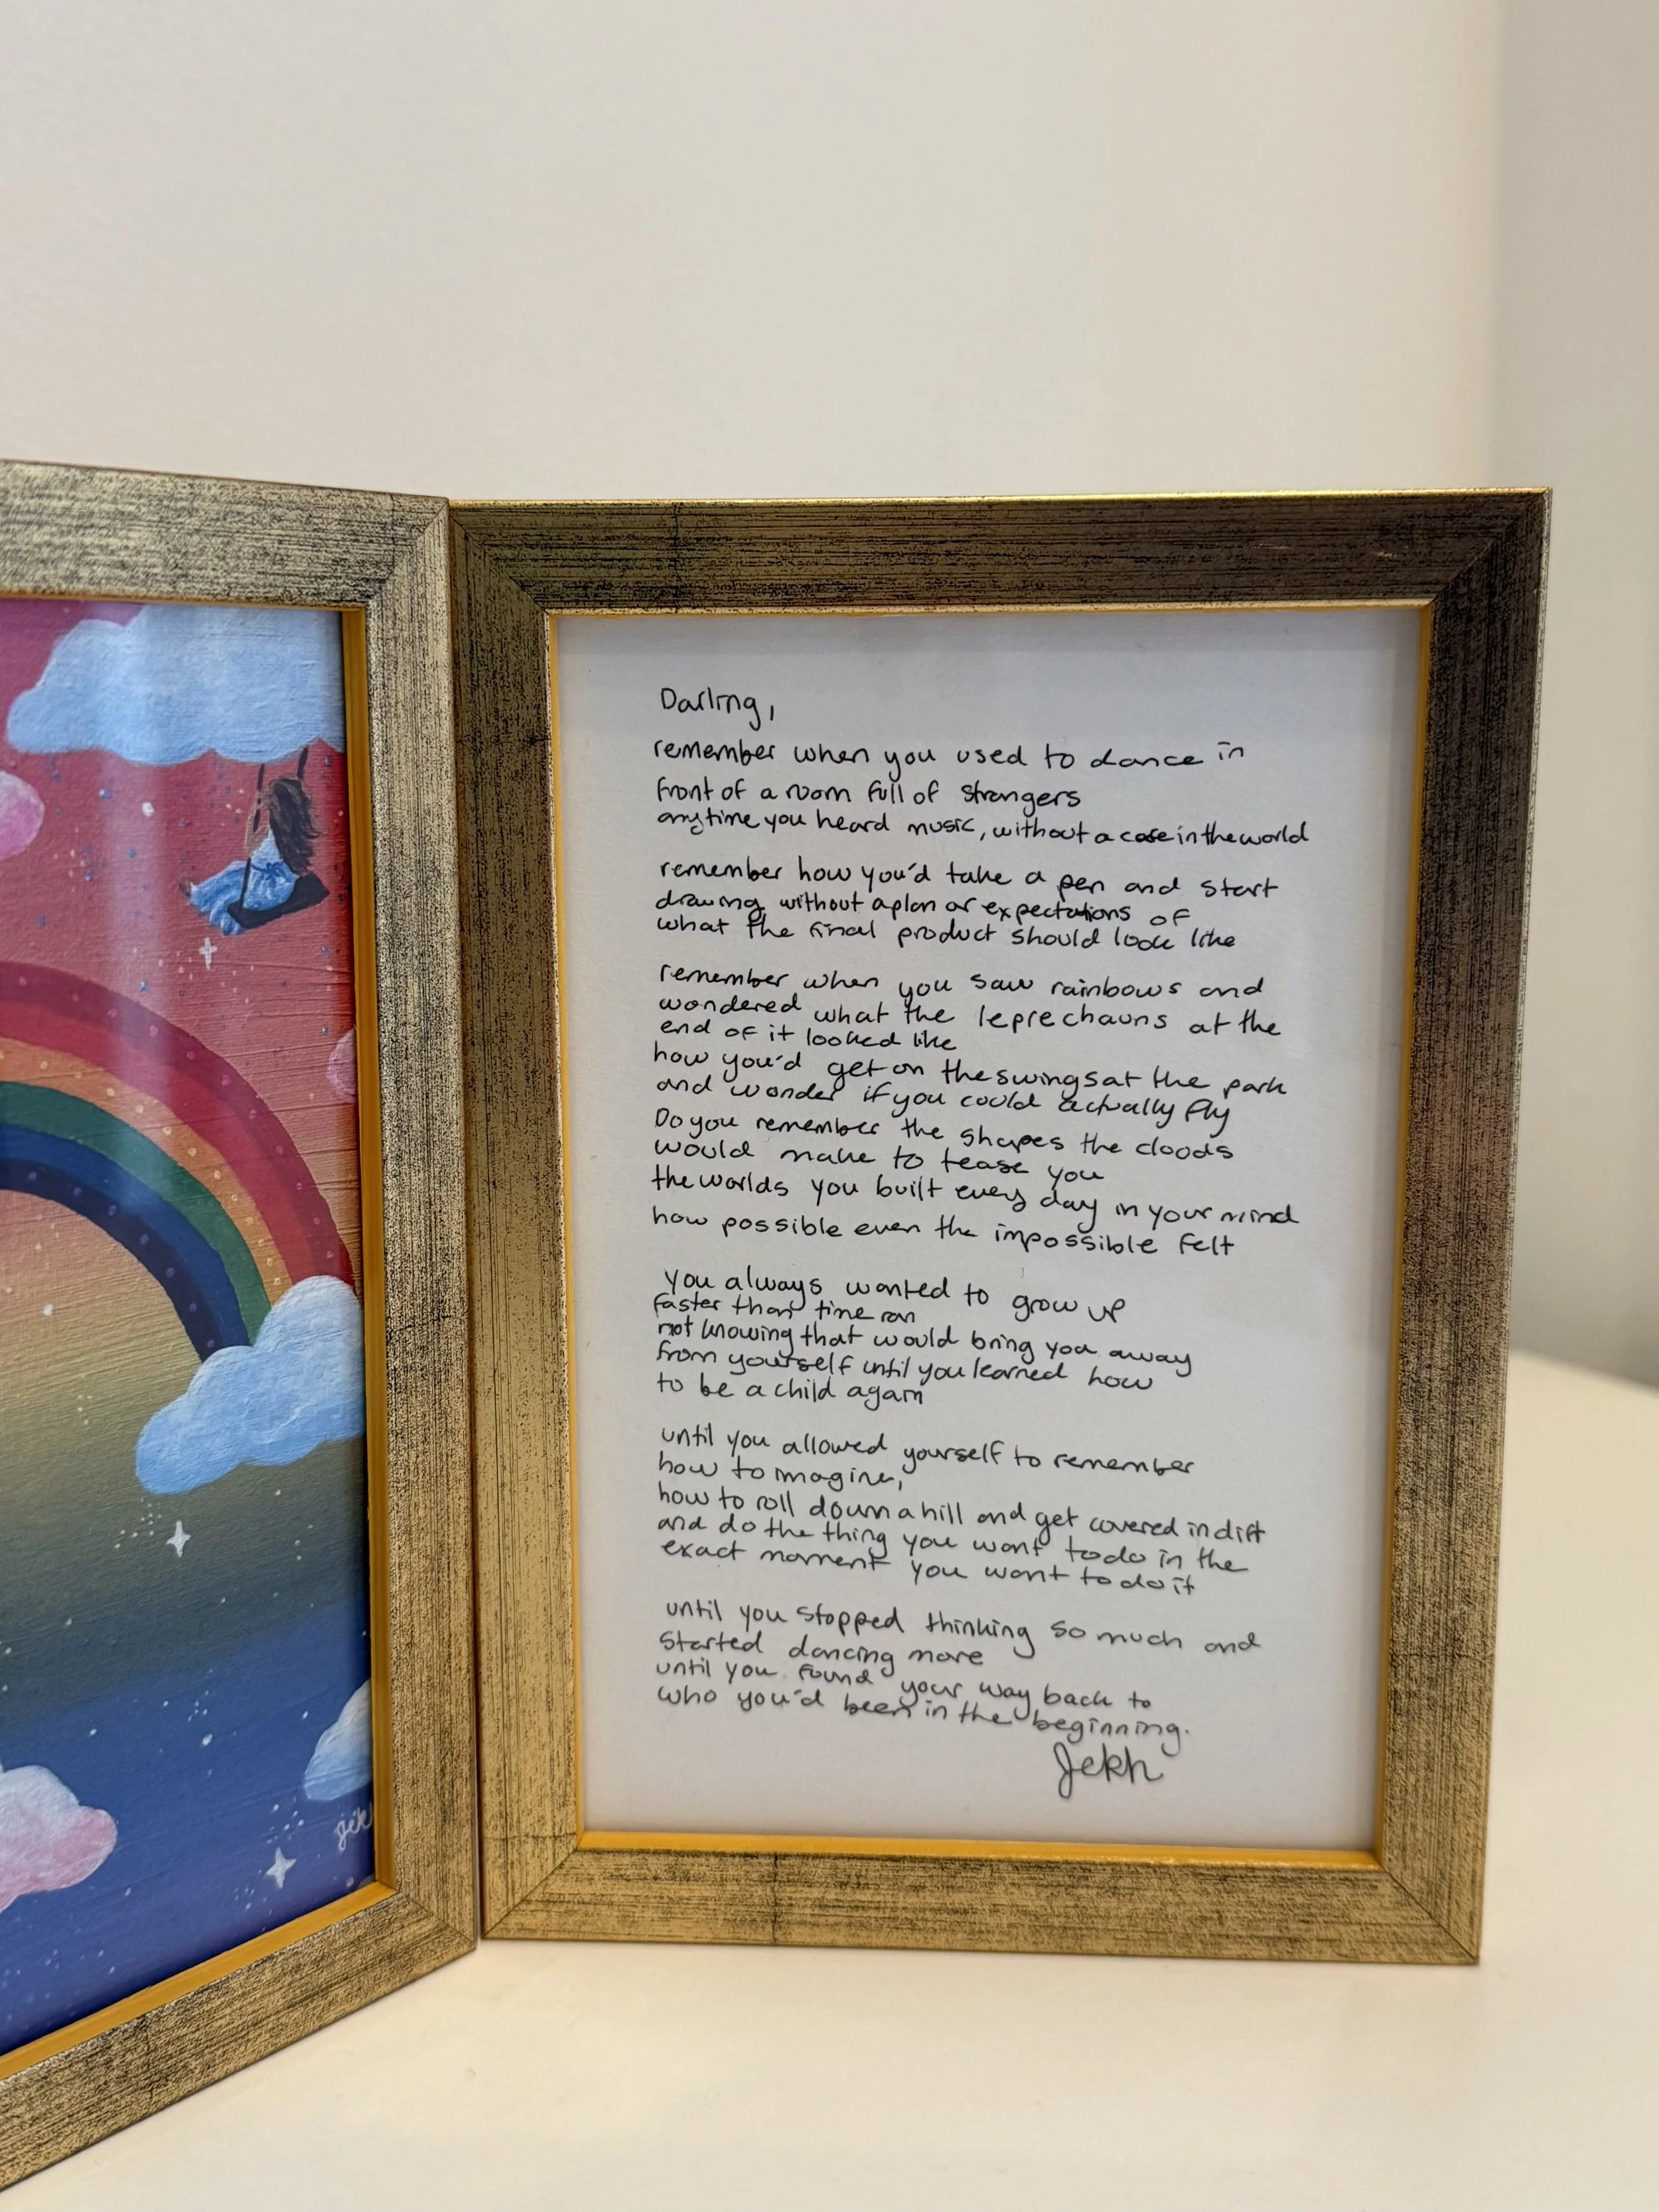 Darling,
remember when you used to dance in
front of a room full of strangers
anytime you heard music, without a care in the world
remember how you'd take a pen and start
drawing without a plan or expectations of
what the final product should look like
remember when you saw rainbows and
wondered what the leprechauns at the
end of it looked like
how you'd get on the swings at the park
and wonder if you could actually fly
Do you remember the shapes the clouds
would make to tease you
the worlds you built every day in your mind
how possible even the impossible felt
you always wanted to grow up
faster than time ran
not knowing that would bring you away
from yourself until you learned how
to be a child again
until you allowed yourself to remember
how to imagine,
how to roll down a hill and get covered in dirt
and do the thing you want to do in the
exact moment you want to do it
until you stopped thinking so much and
started dancing more
until you found your way back to
who you'd been in the beginning.
Jekh